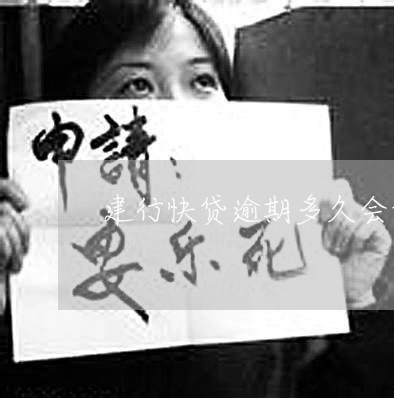 申請：
建行快贷逾期多久会
安乐死